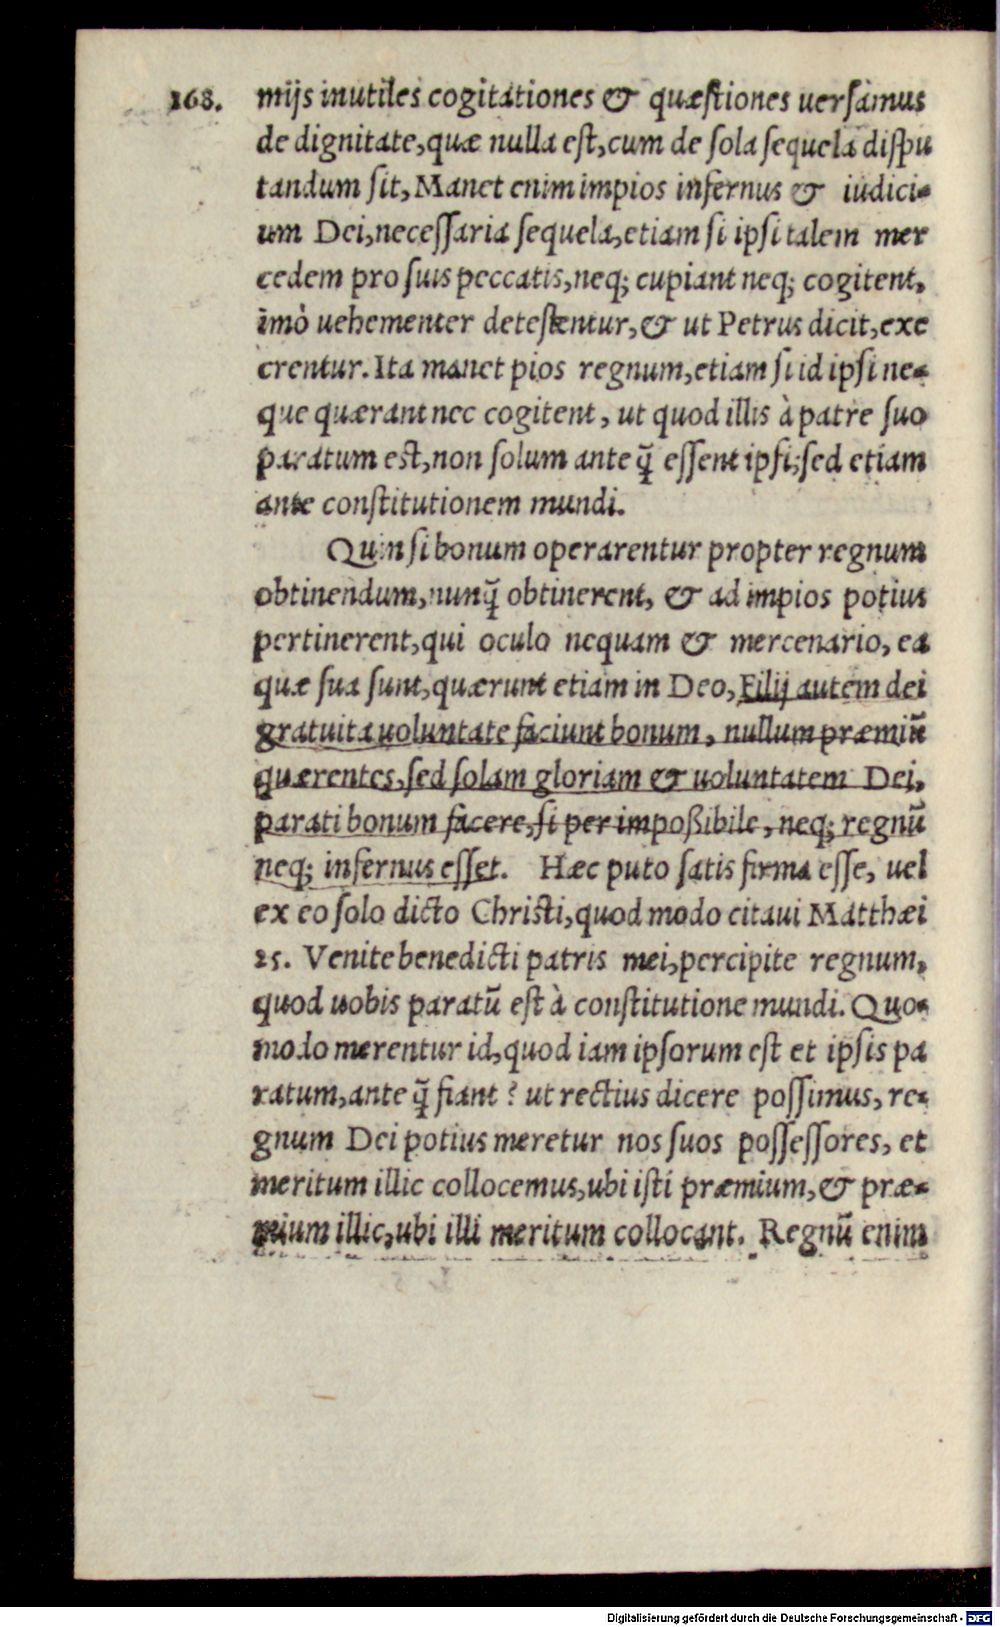 168.
mijs inutiles cogitationes & quæstiones uersamus
de dignitate, quæ nulla est, cum de sola sequela dispu
tandum sit, Manet enim impios infernus & iudici-
um Dei, necessaria sequela, etiam si ipsi talem mer
cedem pro suis peccatis, neq; cupiant neq; cogitent,
imò uehementer detestentur, & ut Petrus dicit, exe
crentur. Ita manet pios regnum, etiam si id ipsi ne-
que quærant nec cogitent, ut quod illis à patre suo
paratum est, non solum ante q̃ essent ipsi; sed etiam
ante constitutionem mundi.
Quin si bonum operarentur propter regnum
obtinendum, nunq̃ obtinerent, & ad impios potius
pertinerent, qui oculo nequam & mercenario, ea
quæ sua sunt, quærunt etiam in Deo, Filij autem dei
gratuita uoluntate faciunt bonum, nullum præmiũ
quærentes, sed solam gloriam & uoluntatem Dei,
parati bonum facere, si per impoßibile, neq; regnũ
neq; infernus esset. Hæc puto satis firma esse, uel
ex eo solo dicto Christi, quod modo citaui Matthæi
25. Venite benedicti patris mei, percipite regnum,
quod uobis paratũ est à constitutione mundi. Quo-
modo merentur id, quod iam ipsorum est et ipsis pa
ratum, ante q̃ fiant? ut rectius dicere possimus, re-
gnum Dei potius meretur nos suos possessores, et
meritum illic collocemus, ubi isti præmium, & præ-
mium illic, ubi illi meritum collocant. Regnũ enim
Digitalisierung gefördert durch die Deutsche Forschungsgemeinschaft - DFG